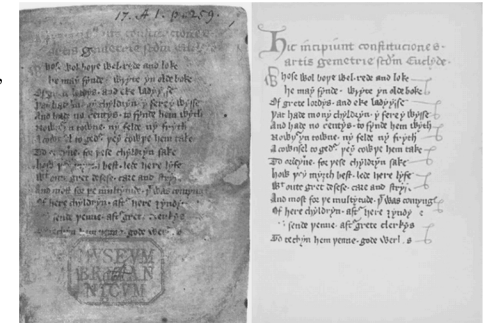 17. A I. p. 259.
Whose wol bope wel rede and loke
he may fynde wryte yn olde boke
Of grete lordys and eke ladyysse
þat hade mony chyldryn y fere y wysse
And hade no rentys to fynde hem wyth
Nowþer yn towne ny felde ny fryth
A cownsel to gedur þey cowþe hem take
To ordeyne for þese chyldryn sake
how þey myȝth best lede here lyfe
Withoute gret desese care and stryf
And most for þe multytude þat was comyng
Of here chyldryn after here ȝyndyng
sende þenne after grete clerkys
To techyn hem þenne gode werkes
MVSEVM
BRITAN
NICVM
Hic incipiunt constituciones
artis gemetrie secundum Euclyde.
Whose wol bope wel rede and loke
he may fynde wryte yn olde boke
Of grete lordys and eke ladyysse
þat hade mony chyldryn y fere y wysse
And hade no rentys to fynde hem wyth
Nowþer yn towne ny felde ny fryth
A cownsel to gedur þey cowþe hem take
To ordeyne for þese chyldryn sake
how þey myȝth best lede here lyfe
Withoute gret desese care and stryf
And most for þe multytude þat was comyng
Of here chyldryn after here ȝyndyng
sende þenne after grete clerkys
To techyn hem þenne gode werkes